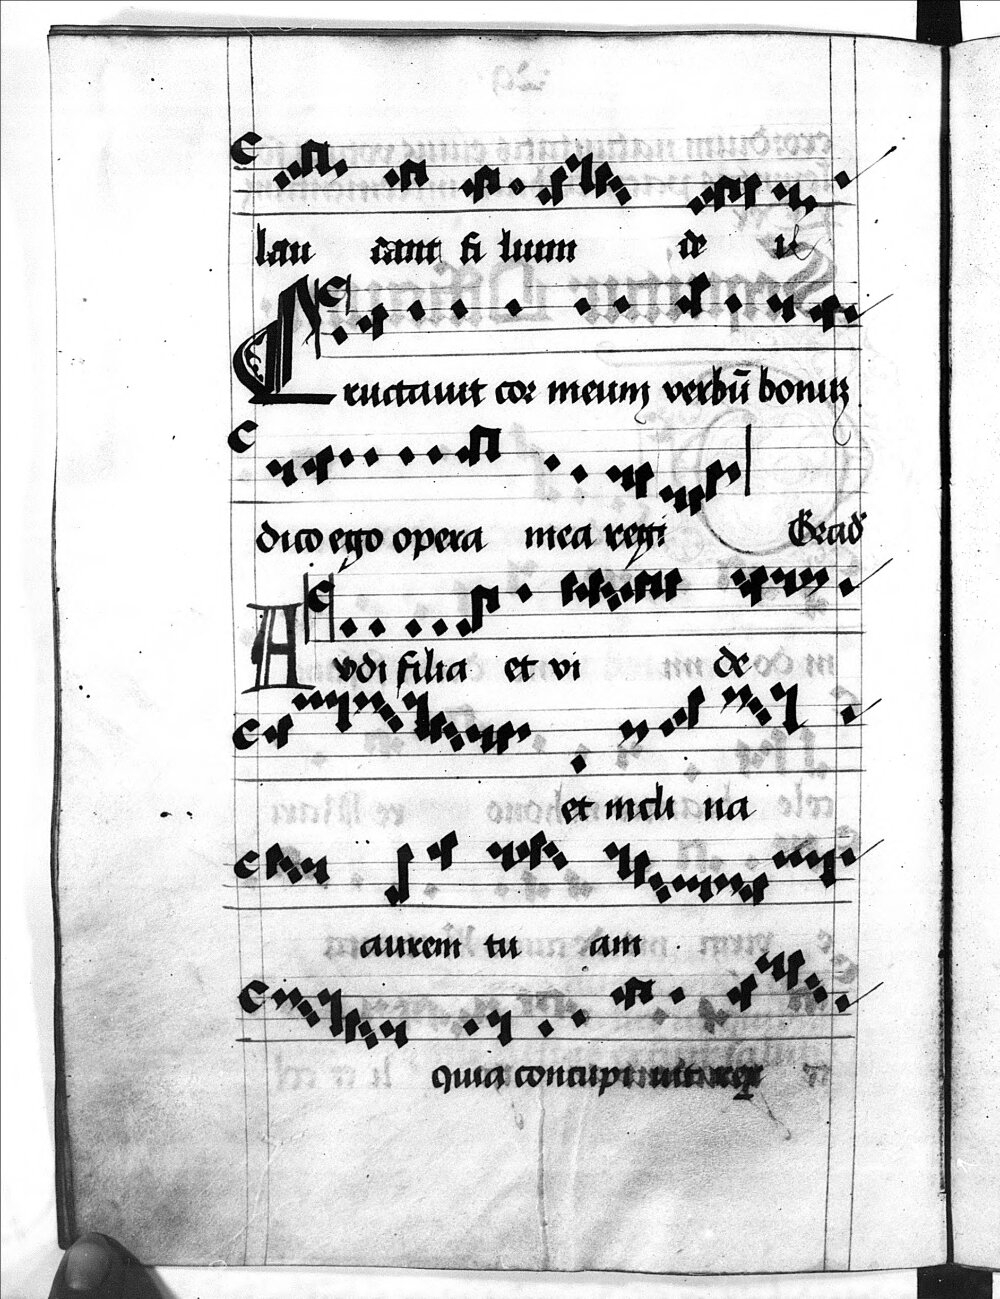 lau dant fi lium de i
Eructauit cor meum verbū bonuʒ
dico ego opera mea regi Grad
Avdi filia et vi de
et incli na
aurem tu am
quia concupi uit rex